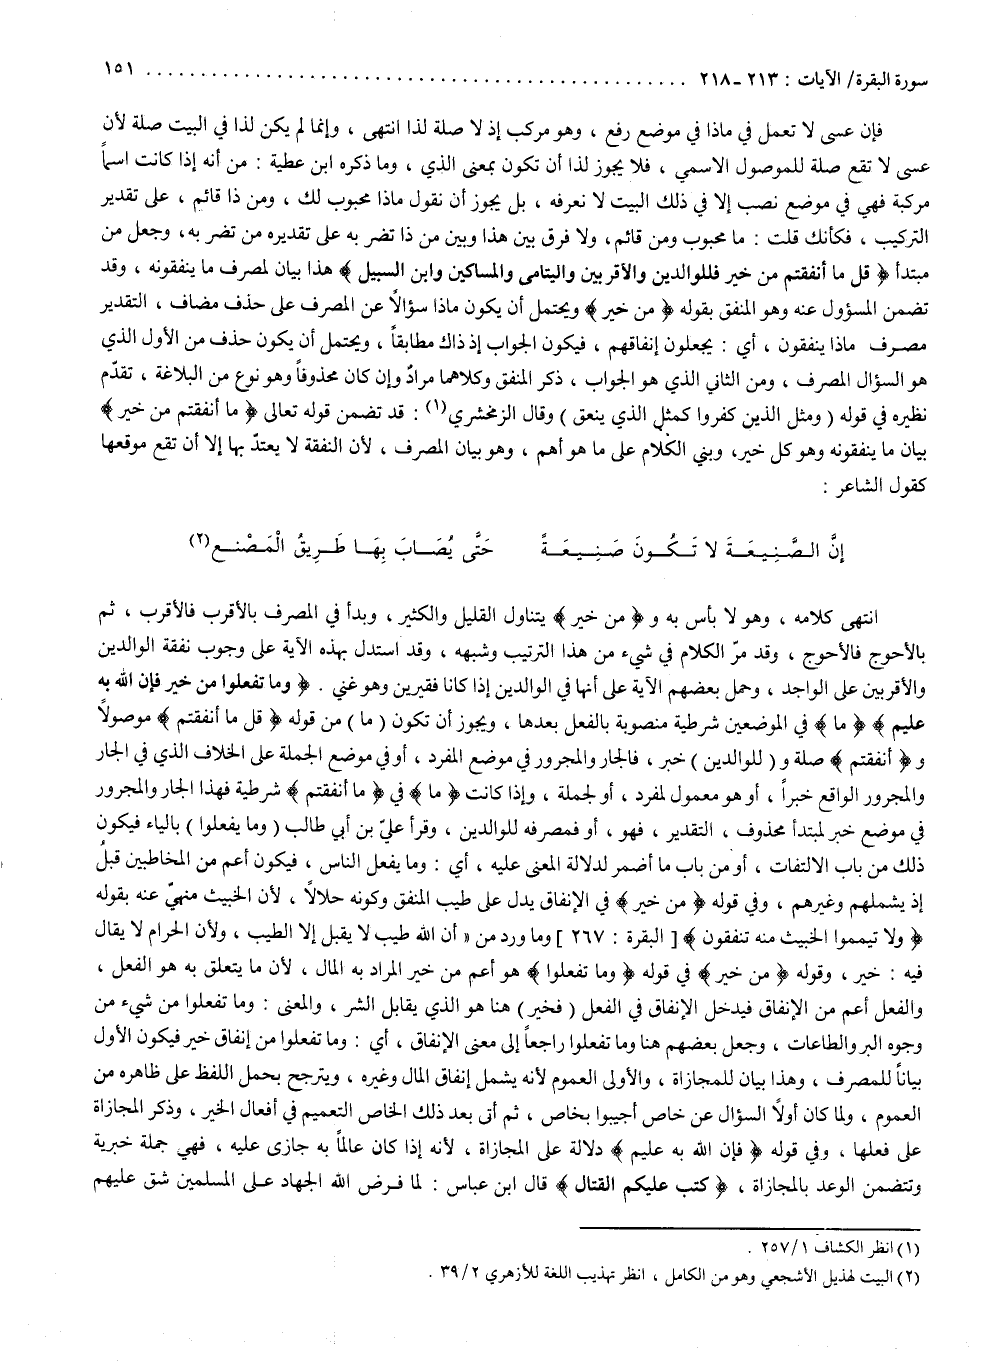 سورة البقرة/ الآيات : ٢١٣ ـ ٢١٨ .................................................. ١٥١
فإن عسى لا تعمل في ماذا في موضع رفع ، وهو مركب إذ لا صلة لذا انتهى ، وإنما لم يكن لذا في البيت صلة لأن
عسى لا تقع صلة للموصول الاسمي ، فلا يجوز لذا أن تكون بمعنى الذي ، وما ذكره ابن عطية : من أنه إذا كانت اسماً
مركبة فهي في موضع نصب إلا في ذلك البيت لا نعرفه ، بل يجوز أن نقول ماذا محبوب لك ، ومن ذا قائم ، على تقدير
التركيب ، فكأنك قلت : ما محبوب ومن قائم، ولا فرق بين هذا وبين من ذا تضر به على تقديره من تضر به، وجعل من
مبتدأ ﴿ قل ما أنفقتم من خير فللوالدين والأقربين واليتامى والمساكين وابن السبيل ﴾ هذا بيان لمصرف ما ينفقونه ، وقد
تضمن المسؤول عنه وهو المنفق بقوله ﴿ من خير ﴾ ويحتمل أن يكون ماذا سؤالاً عن المصرف على حذف مضاف ، التقدير
مصرف ماذا ينفقون ، أي : يجعلون إنفاقهم ، فيكون الجواب إذ ذاك مطابقاً ، ويحتمل أن يكون حذف من الأول الذي
هو السؤال المصرف ، ومن الثاني الذي هو الجواب ، ذكر المنفق وكلاهما مرادٌ وإن كان محذوفاً وهو نوع من البلاغة ، تقدّم
نظيره في قوله ( ومثل الذين كفروا كمثل الذي ينعق ) وقال الزمخشري(١) : قد تضمن قوله تعالى ﴿ ما أنفقتم من خير ﴾
بيان ما ينفقونه وهو كل خير، وبني الكلام على ما هو أهم ، وهو بيان المصرف ، لأن النفقة لا يعتدّ بها إلا أن تقع موقعها
كقول الشاعر :
إنَّ الصَّنِيعَةَ لا تَكُونَ صَنِيعَةً حَتَّى يُصَابَ بِهَا طَرِيقُ الْمَصْنَعِ(٢)
انتهى كلامه ، وهو لا بأس به و ﴿ من خير ﴾ يتناول القليل والكثير ، وبدأ في المصرف بالأقرب فالأقرب ، ثم
بالأحوج فالأحوج ، وقد مرّ الكلام في شيء من هذا الترتيب وشبهه ، وقد استدل بهذه الآية على وجوب نفقة الوالدين
والأقربين على الواجد ، وحمل بعضهم الآية على أنها في الوالدين إذا كانا فقيرين وهو غني . ﴿ وما تفعلوا من خير فإن الله به
عليم ﴾ ﴿ ما ﴾ في الموضعين شرطية منصوبة بالفعل بعدها ، ويجوز أن تكون ( ما ) من قوله ﴿ قل ما أنفقتم ﴾ موصولاً
و ﴿ أنفقتم ﴾ صلة و ( للوالدين ) خبر ، فالجار والمجرور في موضع المفرد ، أو في موضع الجملة على الخلاف الذي في الجار
والمجرور الواقع خبراً ، أو هو معمول لمفرد ، أو لجملة ، وإذا كانت ﴿ ما ﴾ في ﴿ ما أنفقتم ﴾ شرطية فهذا الجار والمجرور
في موضع خبر لمبتدأ محذوف ، التقدير ، فهو ، أو فمصرفه للوالدين ، وقرأ عليّ بن أبي طالب ( وما يفعلوا ) بالياء فيكون
ذلك من باب الالتفات ، أو من باب ما أضمر لدلالة المعنى عليه ، أي : وما يفعل الناس ، فيكون أعم من المخاطبين قبلُ
إذ يشملهم وغيرهم ، وفي قوله ﴿ من خير ﴾ في الإنفاق يدل على طيب المنفق وكونه حلالاً ، لأن الخبيث منهيّ عنه بقوله
﴿ ولا تيمموا الخبيث منه تنفقون ﴾ [ البقرة : ٢٦٧ ] وما ورد من « أن الله طيب لا يقبل إلا الطيب ، ولأن الحرام لا يقال
فيه : خير ، وقوله ﴿ من خير ﴾ في قوله ﴿ وما تفعلوا ﴾ هو أعم من خير المراد به المال ، لأن ما يتعلق به هو الفعل ،
والفعل أعم من الإنفاق فيدخل الإنفاق في الفعل ( فخير ) هنا هو الذي يقابل الشر ، والمعنى : وما تفعلوا من شيء من
وجوه البر والطاعات ، وجعل بعضهم هنا وما تفعلوا راجعاً إلى معنى الإنفاق ، أي : وما تفعلوا من إنفاق خير فيكون الأول
بياناً للمصرف ، وهذا بيان للمجازاة ، والأولى العموم لأنه يشمل إنفاق المال وغيره ، ويترجح بحمل اللفظ على ظاهره من
العموم ، ولما كان أولًا السؤال عن خاص أجيبوا بخاص ، ثم أتى بعد ذلك الخاص التعميم في أفعال الخير ، وذكر المجازاة
على فعلها ، وفي قوله ﴿ فإن الله به عليم ﴾ دلالة على المجازاة ، لأنه إذا كان عالماً به جازى عليه ، فهي جملة خبرية
وتتضمن الوعد بالمجازاة ، ﴿ كتب عليكم القتال ﴾ قال ابن عباس : لما فرض الله الجهاد على المسلمين شق عليهم
(١) انظر الكشاف ٢٥٧/١ .
(٢) البيت لهذيل الأشجعي وهو من الكامل ، انظر تهذيب اللغة للأزهري ٣٩/٢ .